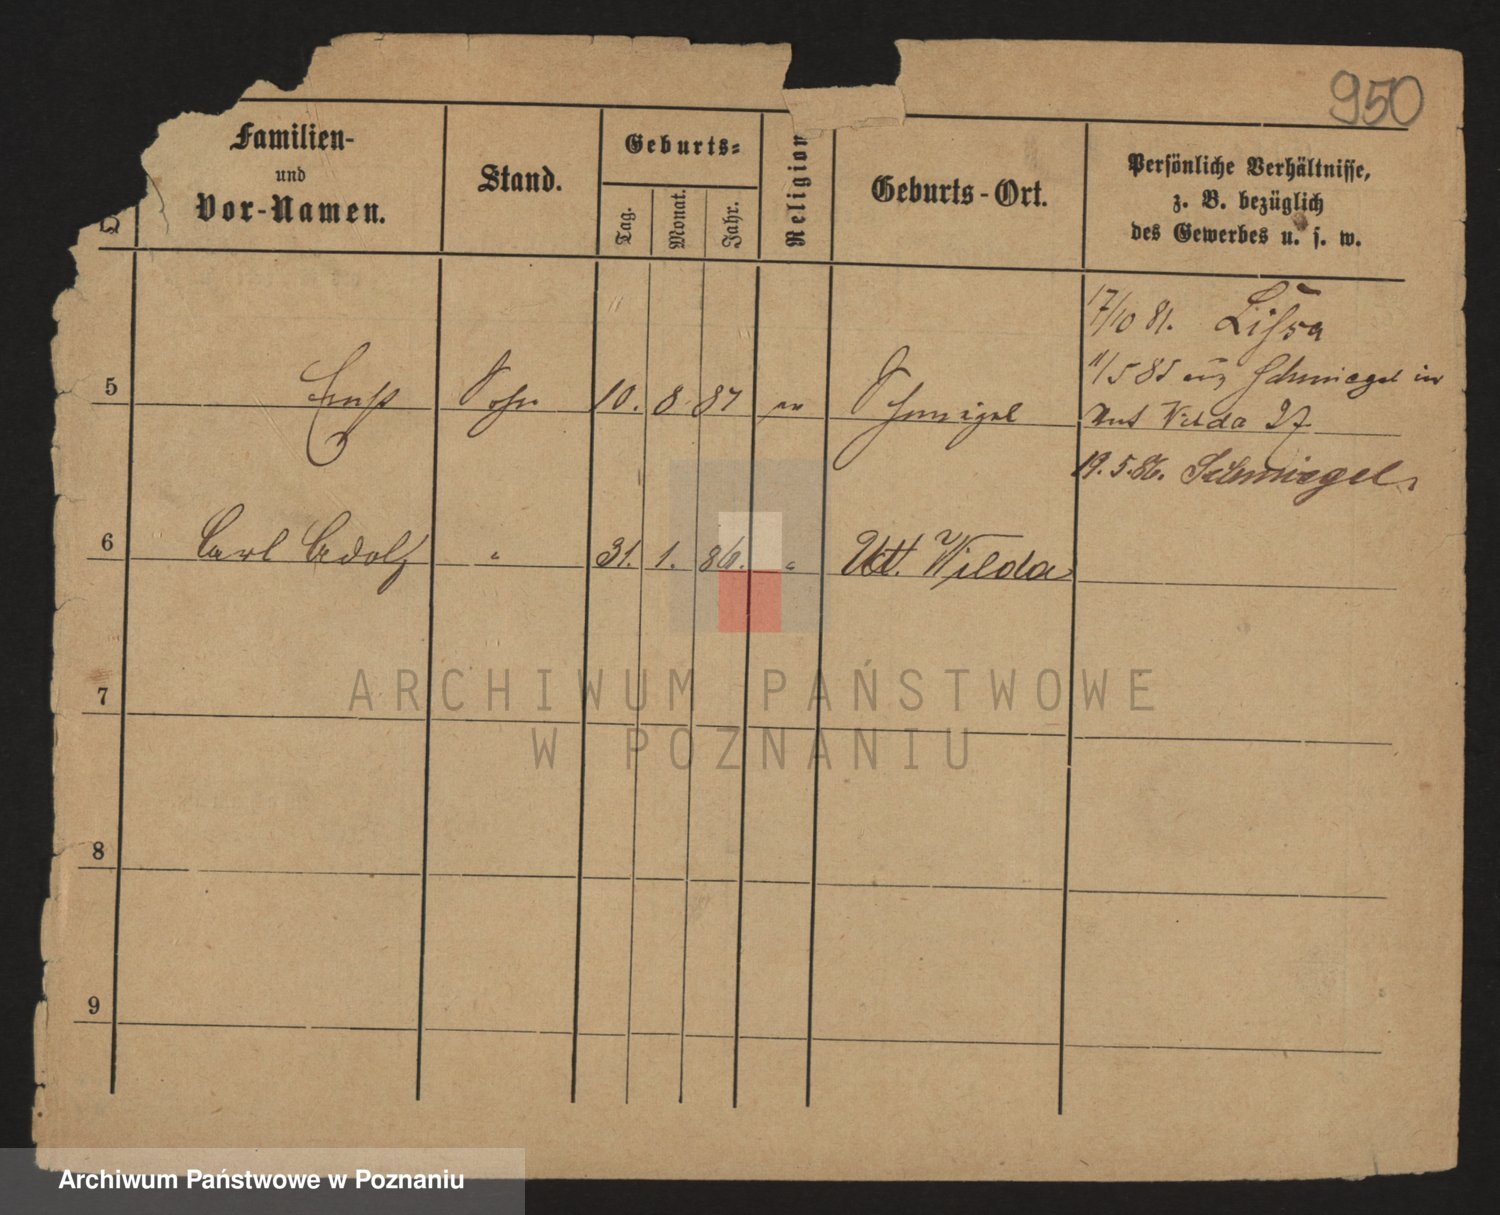 950
Familien-
und
Vor-Namen.
Stand.
Geburts-
Tag.
Monat.
Jahr.
Religion
Geburts-Ort.
Persönliche Verhältnisse,
z. B. bezüglich
des Gewerbes u. s. w.
17/10 81. Lissa
11/5 85 Schmiegel in
5 Ernst Sohn 10. 8. 81 ev Schmiegel Unt Wilda 27
19. 5. 86. Schmiegel.
6 Carl Adolf " 31. 1. 86. " Utt. Wilda
7
8
9
ARCHIWUM PAŃSTWOWE
W POZNANIU
Archiwum Państwowe w Poznaniu